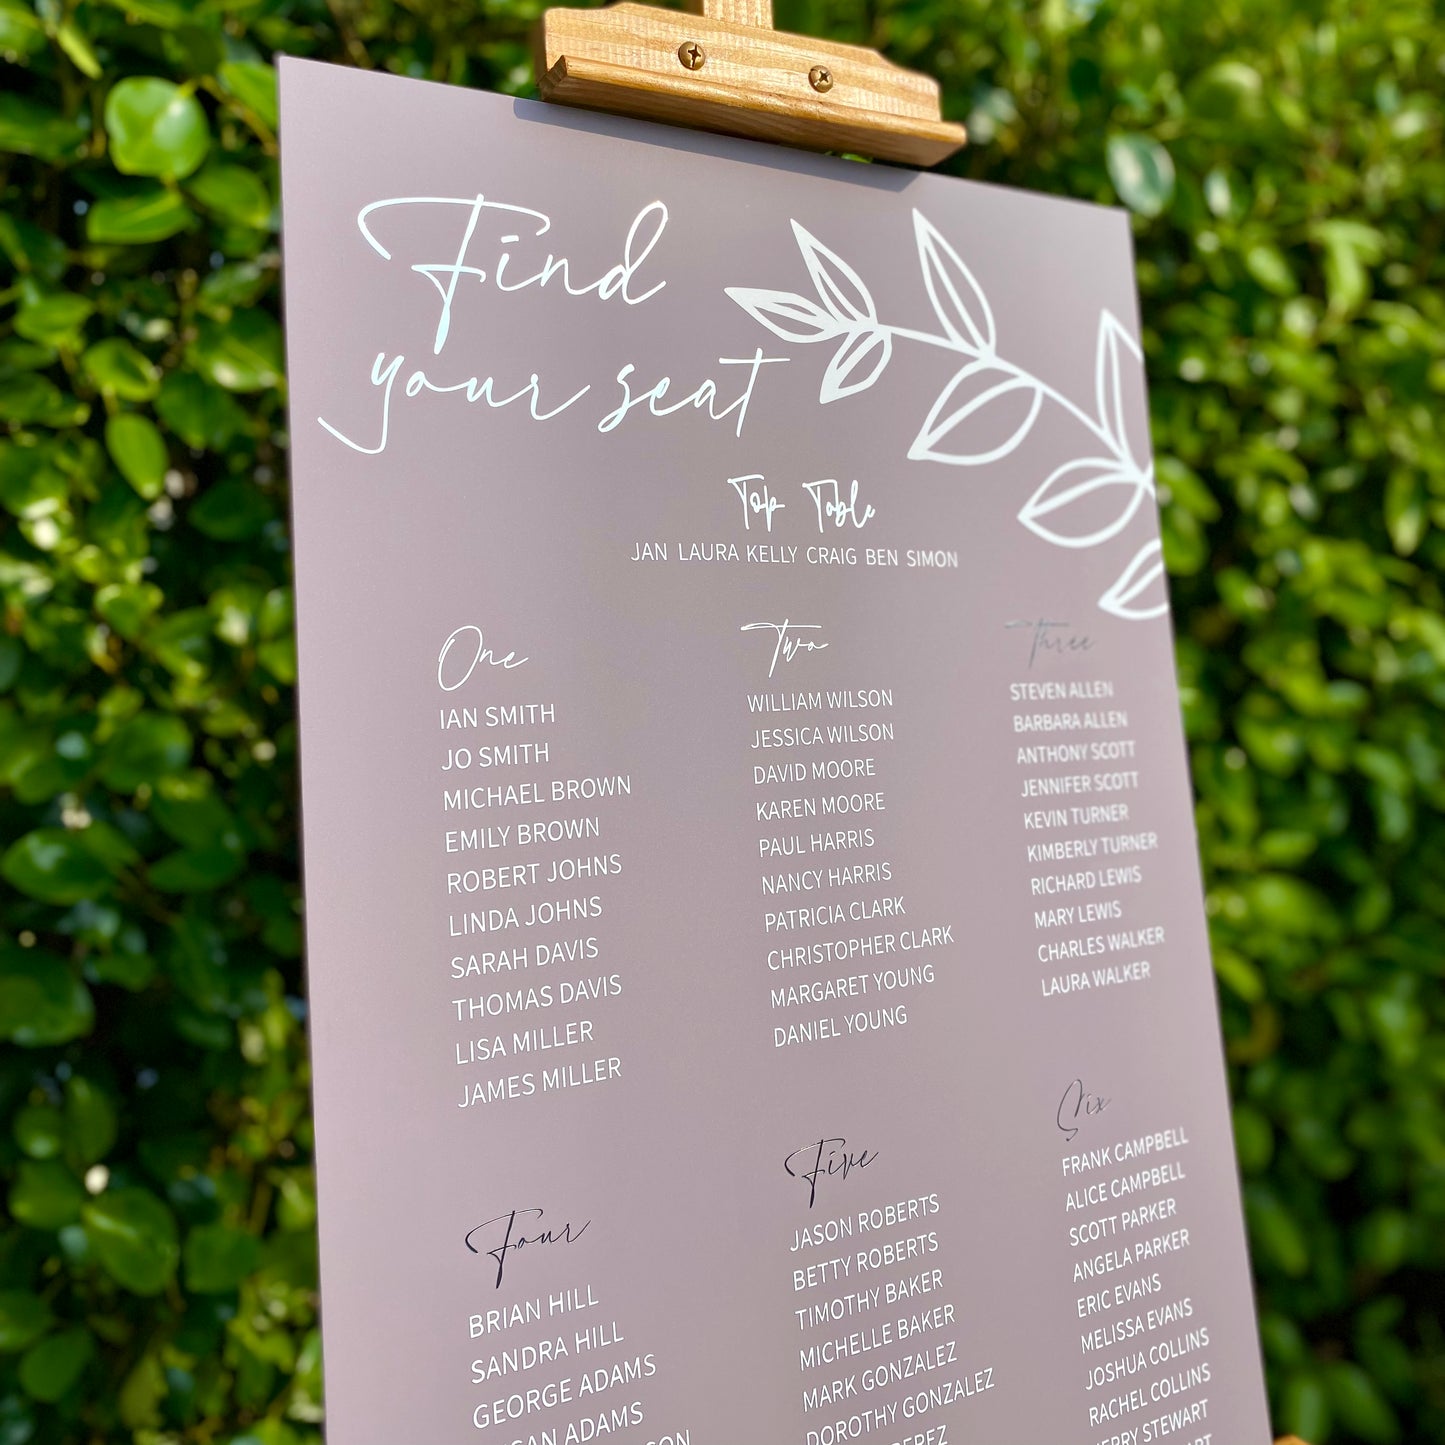 Find
your seat
Top Table
JAN LAURA KELLY CRAIG BEN SIMON
One
IAN SMITH
JO SMITH
MICHAEL BROWN
EMILY BROWN
ROBERT JOHNS
LINDA JOHNS
SARAH DAVIS
THOMAS DAVIS
LISA MILLER
JAMES MILLER
Two
WILLIAM WILSON
JESSICA WILSON
DAVID MOORE
KAREN MOORE
PAUL HARRIS
NANCY HARRIS
PATRICIA CLARK
CHRISTOPHER CLARK
MARGARET YOUNG
DANIEL YOUNG
Three
STEVEN ALLEN
BARBARA ALLEN
ANTHONY SCOTT
JENNIFER SCOTT
KEVIN TURNER
KIMBERLY TURNER
RICHARD LEWIS
MARY LEWIS
CHARLES WALKER
LAURA WALKER
Four
BRIAN HILL
SANDRA HILL
GEORGE ADAMS
ADAMS
Five
JASON ROBERTS
BETTY ROBERTS
TIMOTHY BAKER
MICHELLE BAKER
MARK GONZALEZ
DOROTHY GONZALEZ
Six
FRANK CAMPBELL
ALICE CAMPBELL
SCOTT PARKER
ANGELA PARKER
ERIC EVANS
MELISSA EVANS
JOSHUA COLLINS
RACHEL COLLINS
STEWART